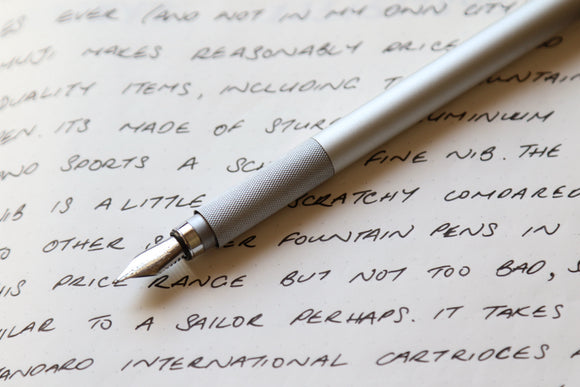 ES EVER (AND NOT IN MY OWN CITY
MUJI MAKES REASONABLY PRICE
QUALITY ITEMS, INCLUDING
EN. ITS MADE OF STUR UMINIUM
AND SPORTS A SC FINE NIB. THE
NIB IS A LITTLE SCRATCHY COMPARED
O OTHER FOUNTAIN PENS IN
HIS PRICE RANGE BUT NOT TOO BAD, S
ILAR TO A SAILOR PERHAPS. IT TAKES
TANDARD INTERNATIONAL CARTRIDGES A